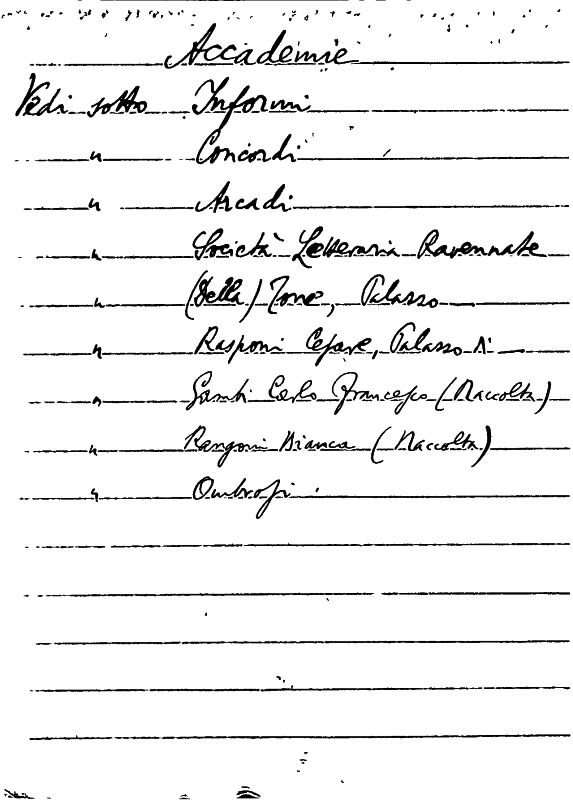 Accademie
Vedi sotto Informi
" Concordi
" Arcadi
" Società Letteraria Ravennate
" (Della) Torre, Palazzo —
" Rasponi Cesare, Palazzo d' —
" Gambi Carlo Francesco (Raccolta)
" Rangoni Bianca (Raccolta)
" Ombrosi .